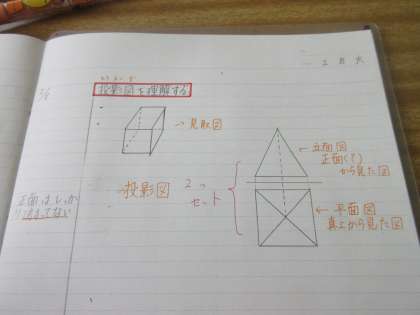 2月火
とうえいず
投影図を理解する
→見取図
立面図
正面(?)
から見た図
→投影図
2つ
セット
平面図
真上から見た図
正面はしっか